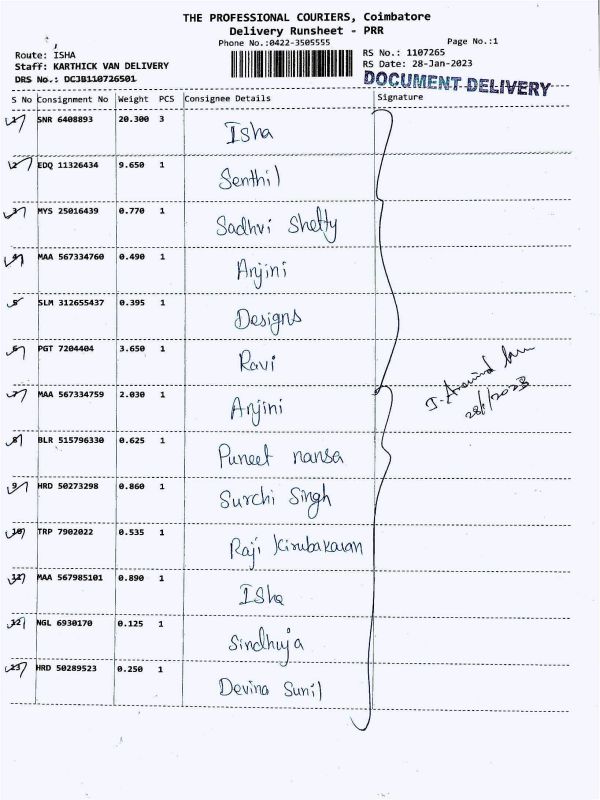 THE PROFESSIONAL COURIERS, Coimbatore
Delivery Runsheet - PRR
Phone No.:0422-3505555
Page No.:1
Route: ISHA
Staff: KARTHICK VAN DELIVERY
DRS No.: DCJB110726501
RS No.: 1107265
RS Date: 28-Jan-2023
DOCUMENT DELIVERY
S No Consignment No Weight PCS Consignee Details Signature
1 SNR 6408893 20.300 3 Isha
2 EDQ 11326434 9.650 1 Senthil
3 MYS 25016439 0.770 1 Sadhvi Shetty
4 MAA 567334760 0.490 1 Anjini
5 SLM 312655437 0.395 1 Designs
6 PGT 7204404 3.650 1 Ravi
7 MAA 567334759 2.030 1 Anjini
8 BLR 515796330 0.625 1 Puneet nansa
9 HRD 50273298 0.860 1 Surchi Singh
10 TRP 7902022 0.535 1 Raji Kirubakaran
11 MAA 567985101 0.890 1 Isha
12 NGL 6930170 0.125 1 Sindhuja
13 HRD 50289523 0.250 1 Devina Sunil
J. Aravind
28/1/2023